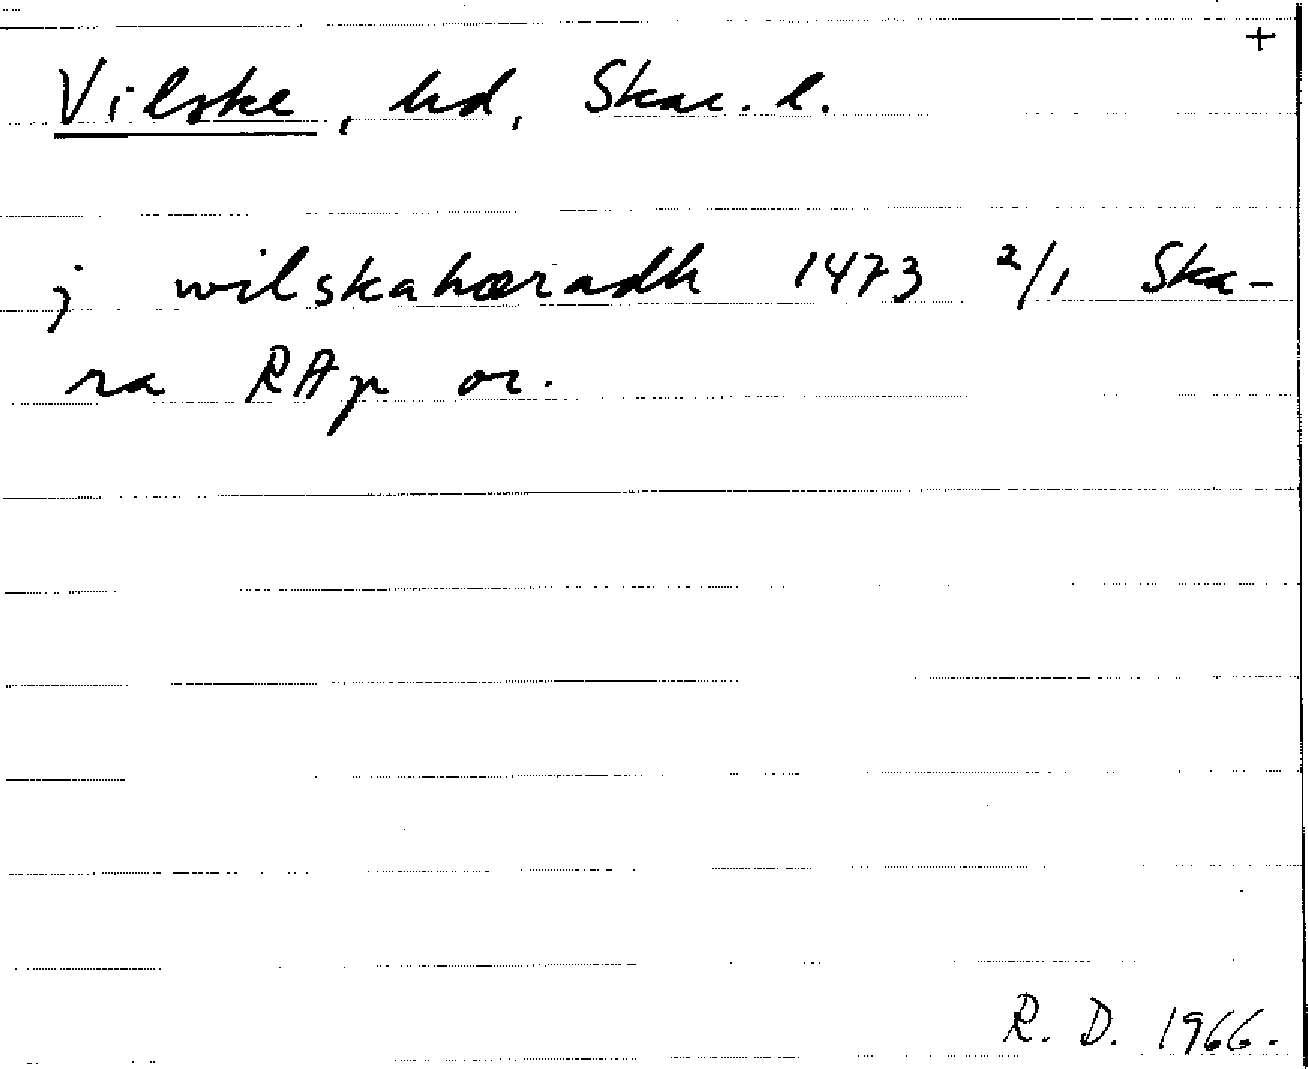 +
Vilske, hd, Skar. l.
j wilskahæradh 1473 2/1 Ska-
ra RAp or.
R. D. 1966.